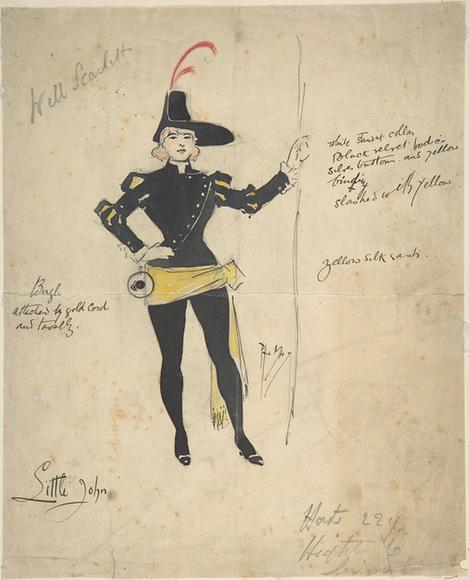 Will Scarlett
white
collar
Black velvet bodice
silver buttons and yellow
binding
slashed with yellow
yellow silk sash.
Bugle
attached by gold cord
and tassels.
Little John